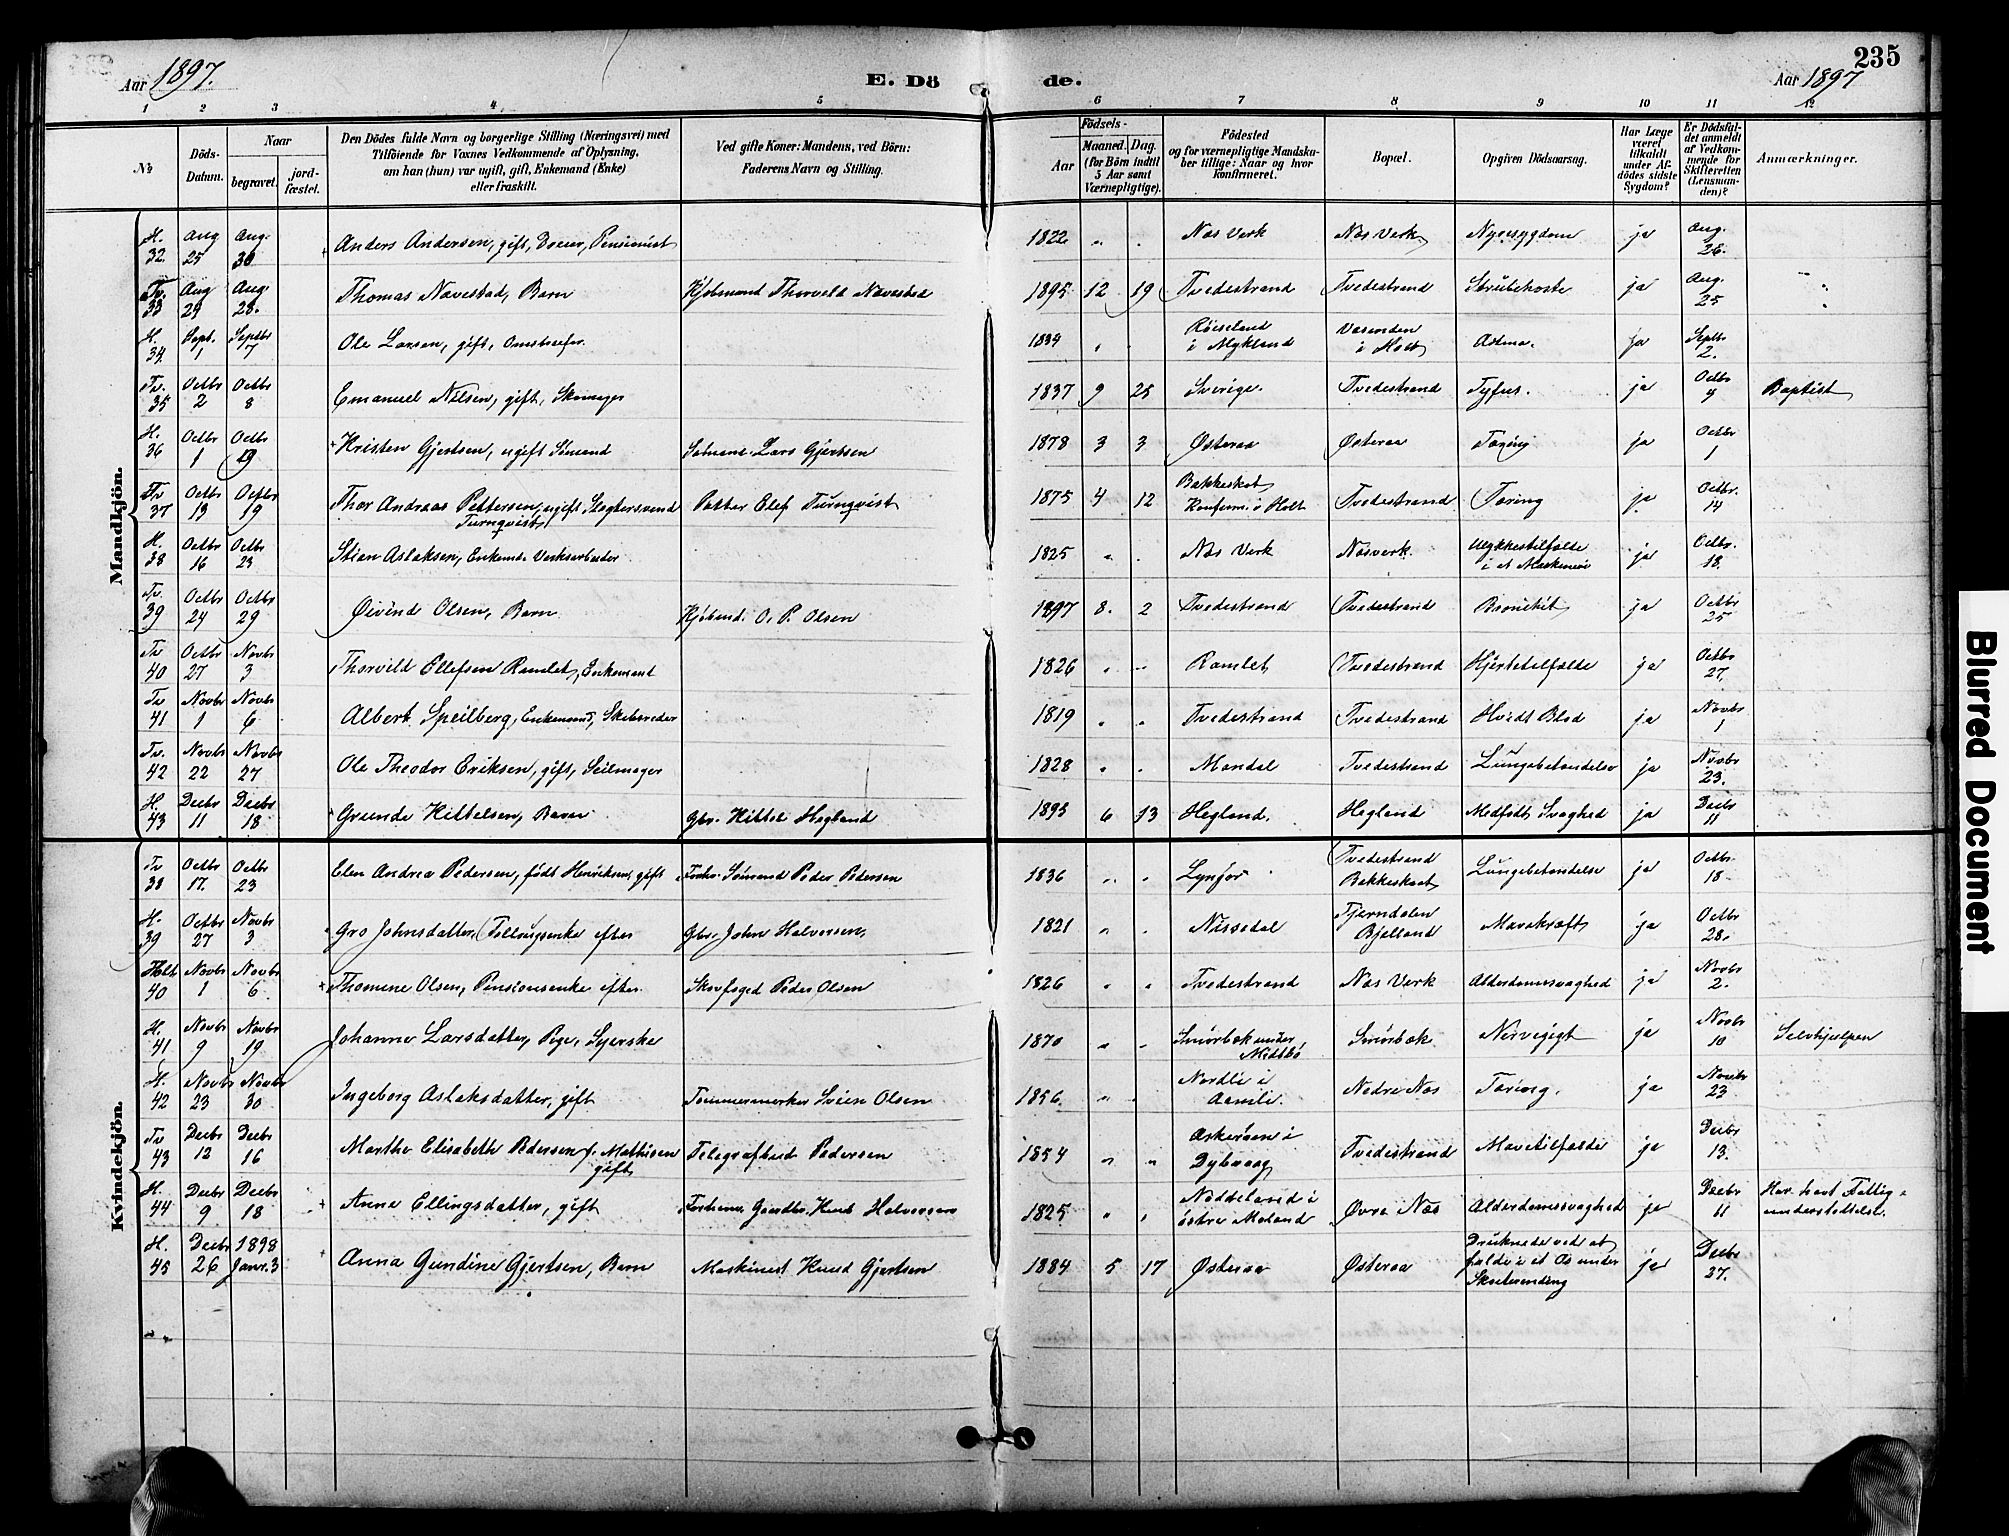 235
Aar 1897.
E. Dö
de.
Aar 1897
1 2 3 4 5 6 7 8 9 10 11 12
№
Döds-Datum.
Naar
begravet.
jord-fæstet.
Den Dödes fulde Navn og borgerlige Stilling (Næringsvei) med
Tilföiende for Voxnes Vedkommende af Oplysning,
om han (hun) var ugift, gift, Enkemand (Enke)
eller fraskilt.
Ved gifte Koner: Mandens, ved Börn:
Faderens Navn og Stilling.
Födsels-
Aar
Maaned.
Dag.
(for Börn indtil
5 Aar samt
Værnepligtige).
Födested
og for værnepligtige Mandska-
ber tillige: Naar og hvor
konfirmeret.
Bopæl.
Opgiven Dödsaarsag.
Har Læge
været
tilkaldt
under Af-
dödes sidste
Sygdom?
Er Dödsfal-
det anmeldt
af Vedkom-
mende for
Skifteretten
(Lensman-
den)?
Anmærkninger.
Mandkjön.
H. 32. Aug 25 Aug. 30 Anders Andersen, gift, Pensionist 1822 " " Næs Verk Næs Verk Nyresygdom ja Aug. 26.
Tv. 33 Aug 29 Aug. 28. Thomas Navestad, Barn Kjöbmand Thorvald Navestad 1895 12 19 Tvedestrand Tvedestrand Strubehoste ja Aug. 25
H. 34. Sept. 1 Septbr 7 Ole Larsen, gift, 1834 " Röiseland i Mykland i Holt Astma. ja Septb 2.
Tv. 35 Octbr 2 Octbr 8 Emanuel Nilsen, gift, Skomager 1837 9 25 Sverige. Tvedestrand Tyfus. ja Octbr Baptist
H. 36 Octbr 1 Octbr Kristen Gjertsen, ugift Sömand Sömand Lars Gjertsen 1878 3 3 Österaa Österaa Tæring ja Octbr 1
Tv 37 Octbr 13 Octbr 19 Thor Andreas Pettersen, ugift Slagtersvend Turnqvist Petter Elef Turnqvist 1875 4 12 Bakkeskot Konferm. i Holt Tvedestrand Tæring ja Octbr. 14
H. 38 Octbr 16 Octbr 23 Stian Aslaksen, Enkem. Verksarbeider 1825 " Næs Verk Næsverk. Ulykkestilfælde i et Maskineri ja Octbr. 18.
Tv. 39 Octbr 24 Octbr 29 Öivind Olsen, Barn Kjöbmd. O. P. Olsen 1897 8. 2 Tvedestrand Tvedestrand Bronikit ja Octbr 25
Tv 40 Octbr 27 Novbr 3 Thorvild Ellefsen Ramlet, Enkemand 1826 " " Ramlet Tvedestrand Hjertetilfælde ja Octbr 27.
Tv 41 Novbr 1 Novbr 6 Albert Speilberg, Enkemand, Skibsreder 1819 " " Tvedestrand Tvedestrand Hvidt Blod ja Novbr 1
Tv. 42 Novbr 22 Novbr 27 Ole Theodor Eriksen, gift, Seilmager 1828 " " Mandal Tvedestrand Lungebetændelse ja Novbr 23.
H. 43 Decbr 11 Decbr 18 Grunde Kittelsen, Barn Gbr. Kittel Hegland 1895 6 13 Hegland. Hegland Medfödt Svaghed ja Decbr 11
Kvindekjön.
Tv 38 Octbr 17. Octbr 23 Elen Andrea Pedersen, födt Henriksen, gift Forhv. Sömand Peder Pedersen 1836 " " Lyngör Tvedestrand Bakkeskaat Lungebetændelse ja Octbr. 18
H. 39 Octbr 27 Novbr 3 Gro Johnsdatter, efter Gbr. John Halvorsen, 1821 " " Næssedal Tjerndalen Bjelland Mavekræft ja Octbr 28.
Holt 40 Novbr 1 Novbr 6 Thomine Olsen, Pensionsenke efter Skovfoged Peder Olsen 1826 " " Tvedestrand Næs Verk Alderdomssvaghed ja Novbr 2.
H. 41 Novbr 9 Novbr 19 Johanne Larsdatter, Pige, Syerske 1870 " " Smörbæk under Midtbö Smörbæk Nervegigt ja Novbr 10 Selvhjulpen
H. 42 Novbr 23 Novbr 30 Ingeborg Aslaksdatter, gift Tömmermerker Svein Olsen 1856 " Nordli i Aamli. Nedre Næs Tæring. ja Novbr 23
Tv 43 Decbr 12 Decbr 16 Marthe Elisabeth Pedersen f. Mathisen gift Telegrafbud Pedersen 1854 " " Askeröen i Dybvaag Tvedestrand Mavetilfælde ja Decbr 13.
H. 44 Decbr 9 Decbr 18 Anne Ellingsdatter, gift Knut Halvorsen 1825 " " i östre Moland Övre Næs Alderdomssvaghed ja Decbr 11 Har havt Fattigunderstöttelse.
H. 45 Decbr 26 1898 Janr. 3 Anna Gundine Gjertsen, Barn Maskinist Knud Gjertsen 1884 5 17 Österaa Österaa Druknede ved at falde i et Os under Skoiterending ja Decbr 27.
Blurred Document